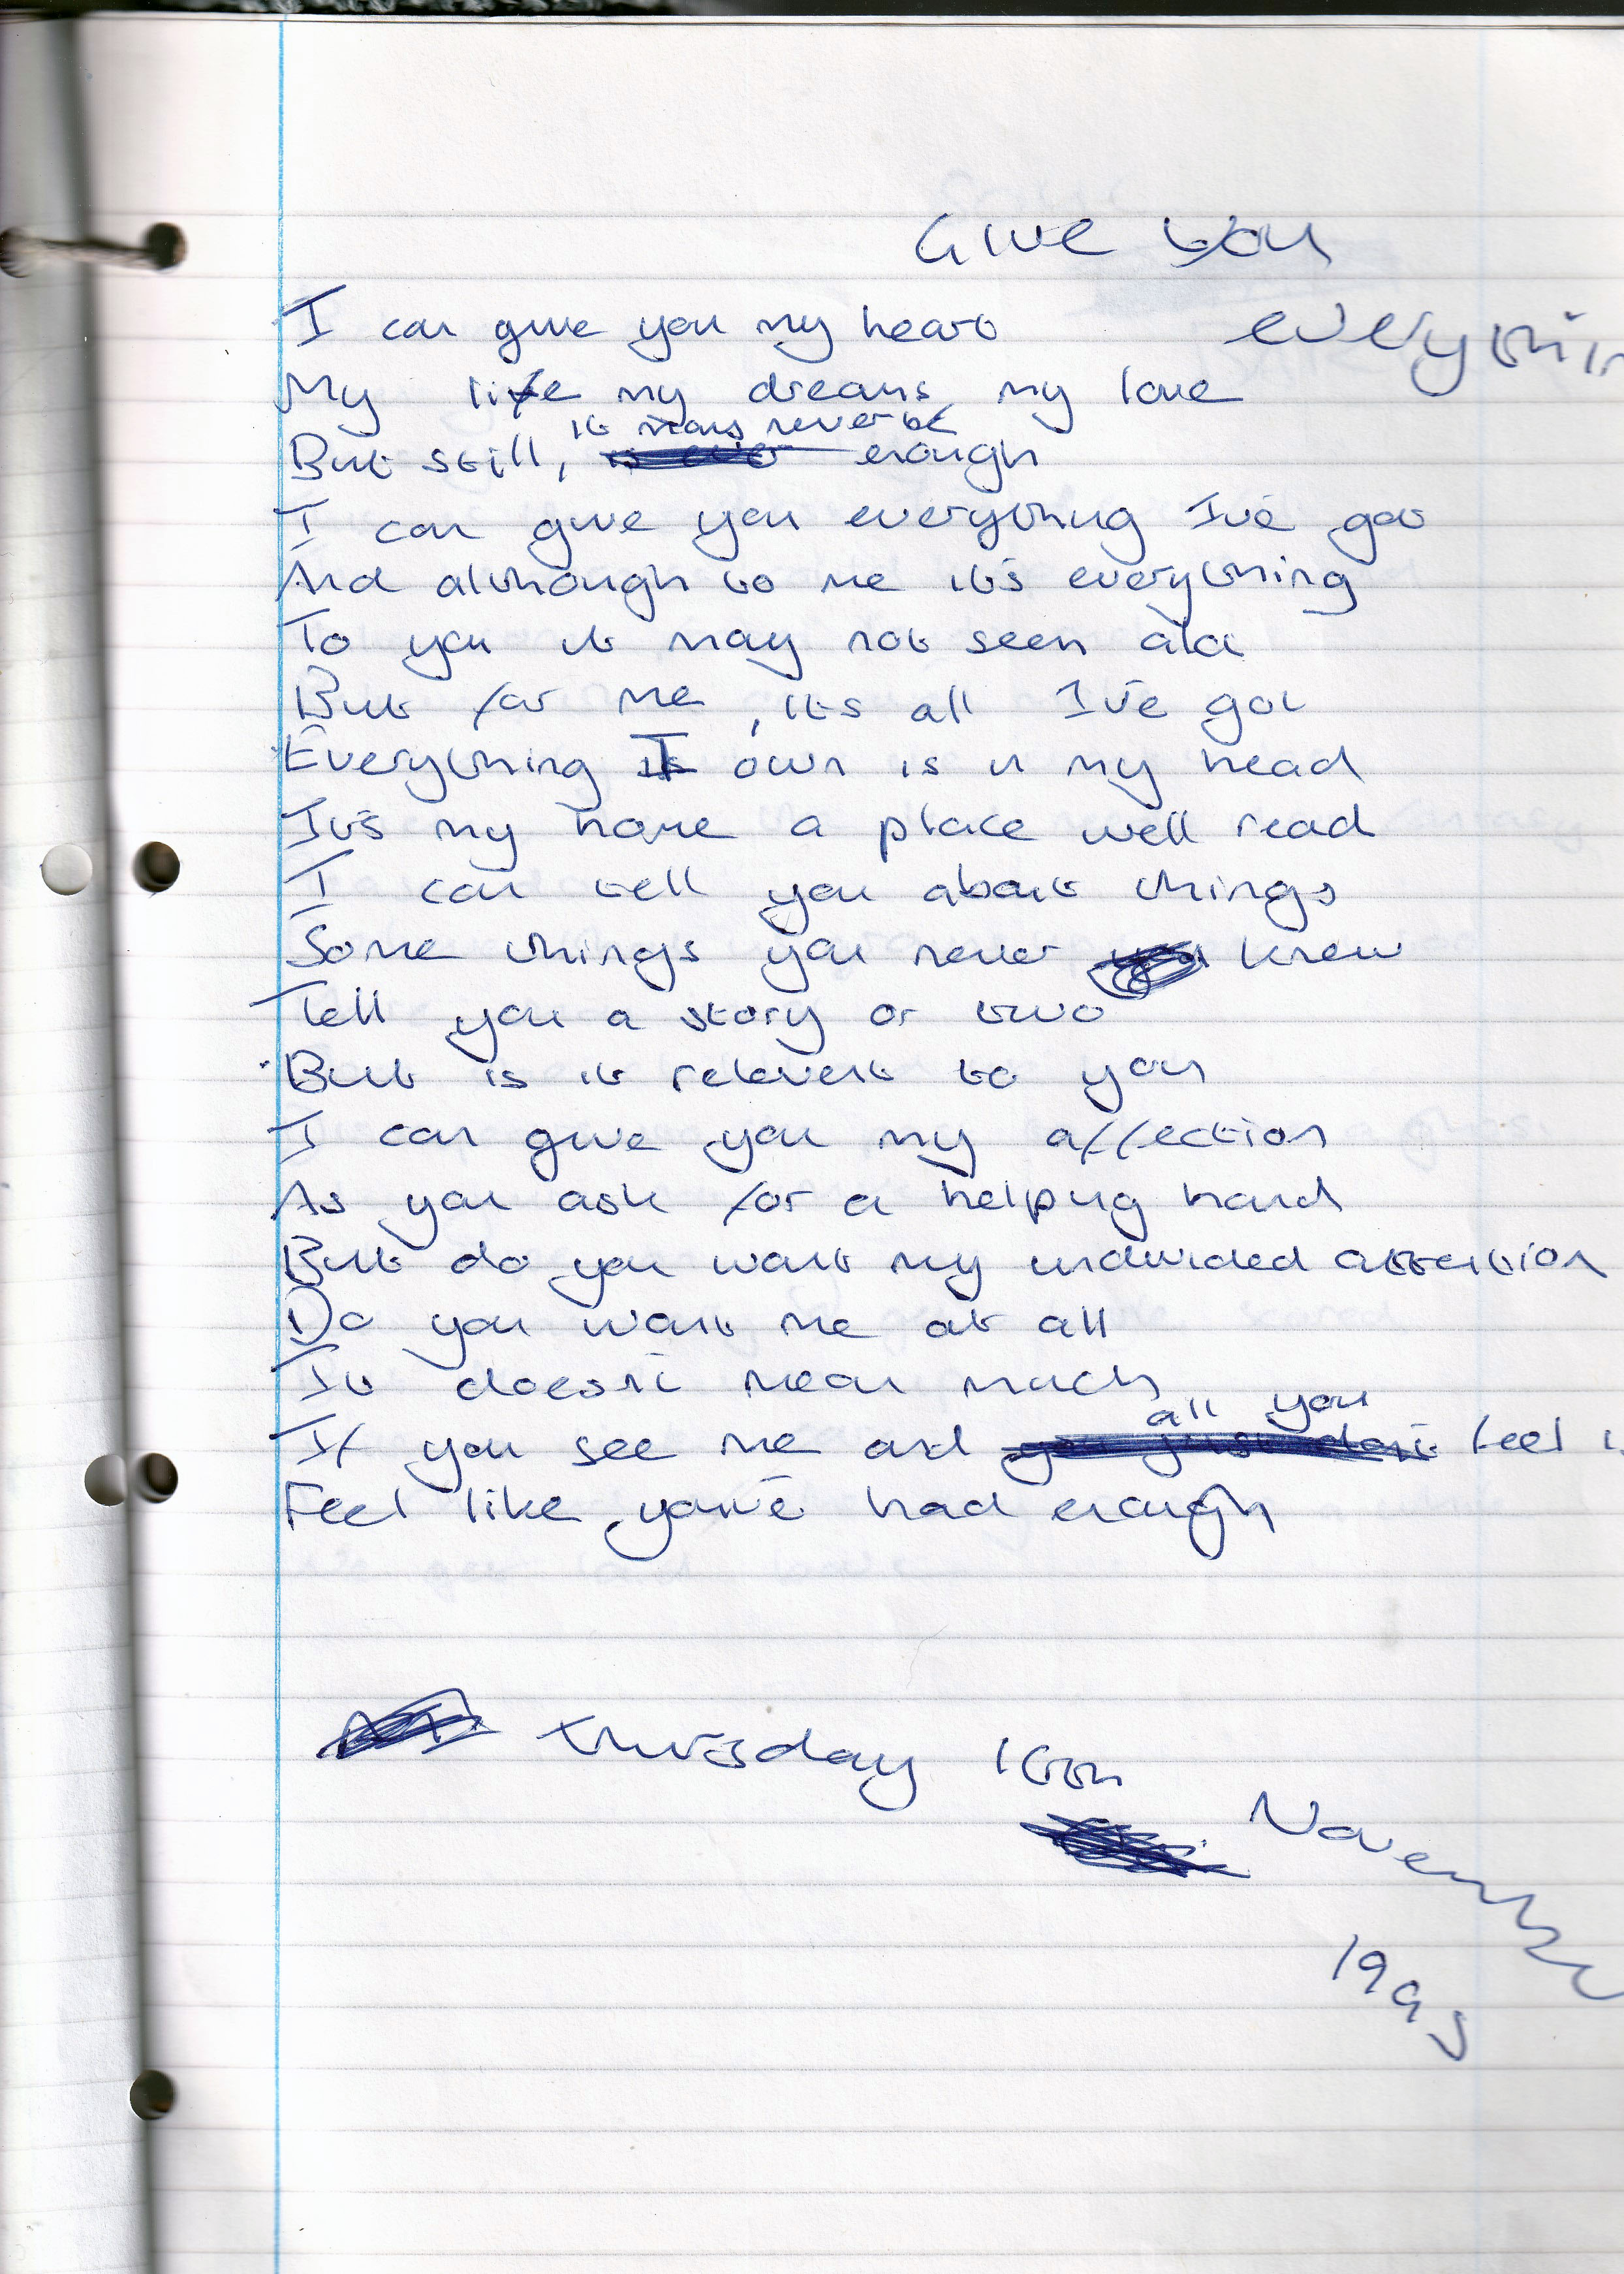 Give you
everythin
I can give you my heart
My life my dreams, my love
it may never be
But still, enough
I can give you everything I've got
And although to me it's everything
To you it may not seem alot
But for me, it's all I've got
Everything I own is in my head
It's my home a place well read
I can tell you about things
Some things you never knew
Tell you a story or two
But is it relevent to you
I can give you my affection
As you ask for a helping hand
But do you want my undivided attention
Do you want me at all
It doesn't mean much
all you
If you see me and feel is
Feel like you've had enough
Thursday 16th
November
1995